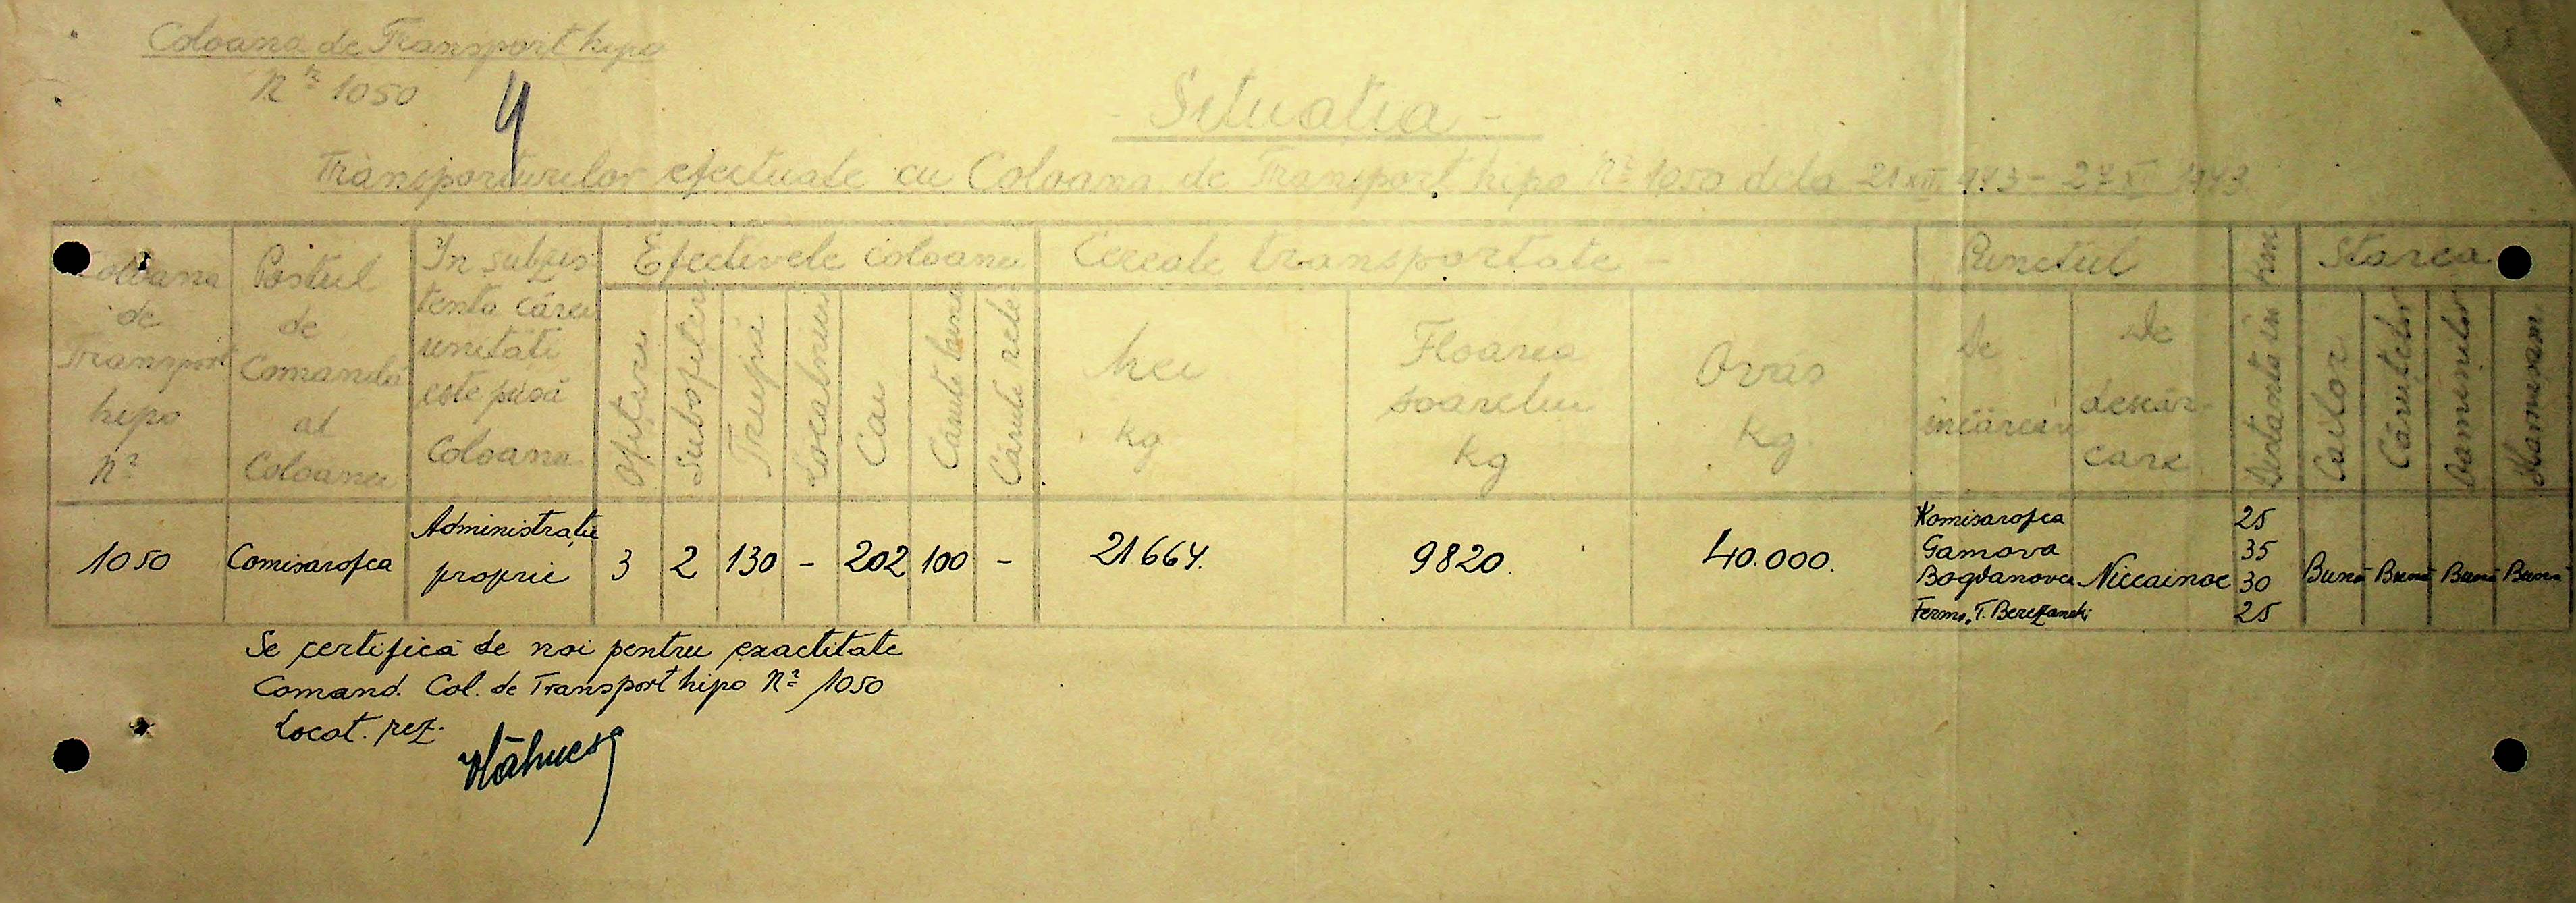 Coloana de Transport hipo
Nr 1050
4
- Situatia -
Transporturilor efectuate cu Coloana de Transport hipo Nr 1050 dela 21 XII 943 - 27 XI 1943
Coloana de Transport hipo Nr
Postul de Comandă al Coloanei
In subzistenta cărei unităti este pusă Coloana
Efectivele coloanei
Ofiteri
Subofiteri
Trupă
Localnici
Cai
Carute bune
Cărute rele
Cereale transportate -
Mei kg
Floarea soarelui kg
Ovăs kg
Punctul
De incărcare
De descărcare
Distanta in km
Starea
Cailor
Cărutelor
Oamenilor
Hamurilor
1050
Comisarofca
Administratie proprie
3
2
130
-
202
100
-
21664.
9820.
40.000.
Komisarofca 25
Gamova 35
Bogdanovca 30
Ferma T. Berezanski 25
Niccainoe
Bună Bună Bună Bună
Se certifică de noi pentru exactitate
Comand. Col. de Transport hipo Nr 1050
Locot. rez.